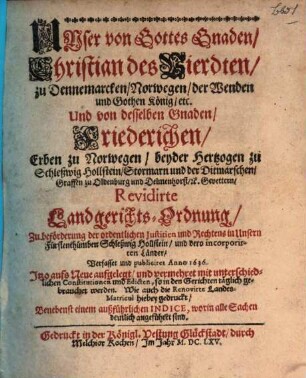 UNser von Gottes Gnaden/
Christian des Vierdten/
zu Dennemarcken/Norwegen/der Wenden
und Gothen König/etc.
Und von desselben Gnaden/
Friederichen/
Erben zu Norwegen/beyder Hertzogen zu
Schleßwig Hollstein/Stormarn und der Ditmarschen/
Graffen zu Oldenburg und Delmenhorst/ꝛc. Gevettern/
Revidirte
Landgerichts-Ordnung/
Zu beförderung der ordentlichen Justitien und Rechtens in Unsern
Fürstenthümben Schleßwig Hollstein/und dero incorporir-
ten Länder/
Verfasset und publiciret Anno 1636.
Itzo auffs Neue auffgelegt/und vermehret mit unterschied-
lichen Constitutionen und Edicten/so in den Gerichten täglich ge-
brauchet werden. Wie auch die Renovirte Landes-
Matricul hiebey gedruckt/
Benebenst einem außführlichen INDICE, worin alle Sachen
deutlich angeführet sind.
Gedruckt in der Königl. Vestung Glückstadt/durch
Melchior Kochen/Im Jahr M. DC. LXV.